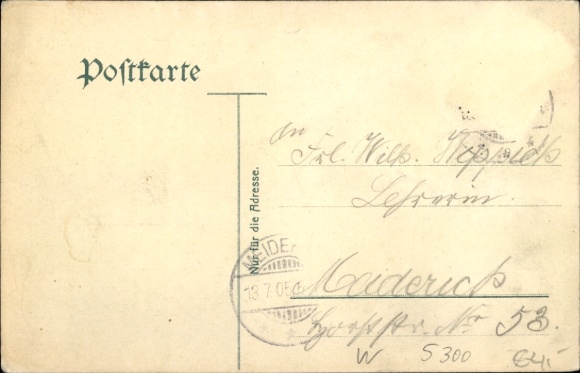 Postkarte
Nur für die Adresse.
An
Frl. Wilh.
Lehrerin.
MEIDE
13.7.05
Meiderich
Horststr. No 53.
W S300 64,-